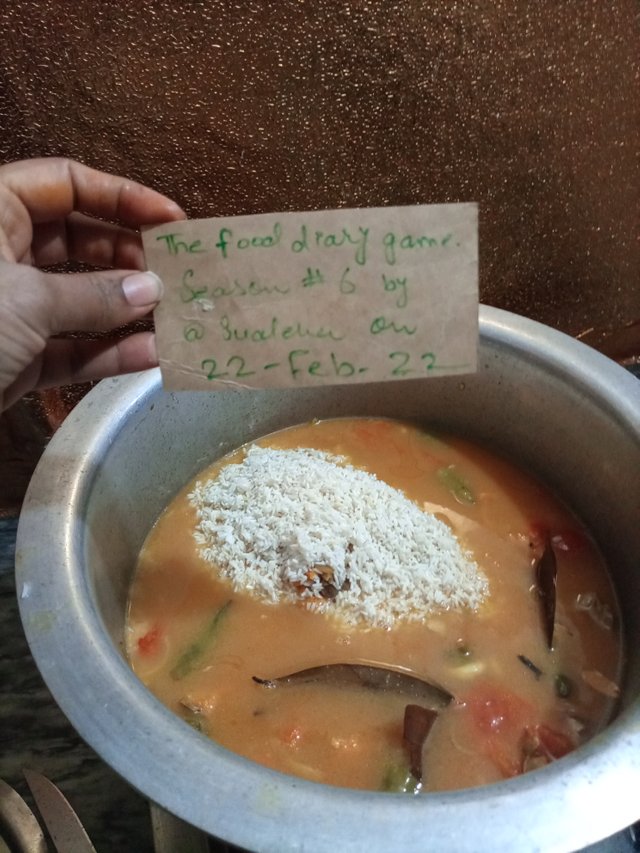 The food diary game.
Season # 6 by
@ on
22-Feb-22